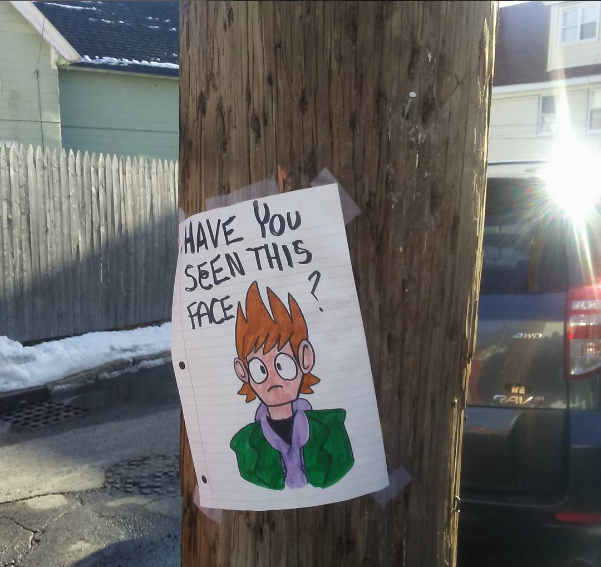 HAVE YOU
SEEN THIS
FACE ?
4WD
RAV4